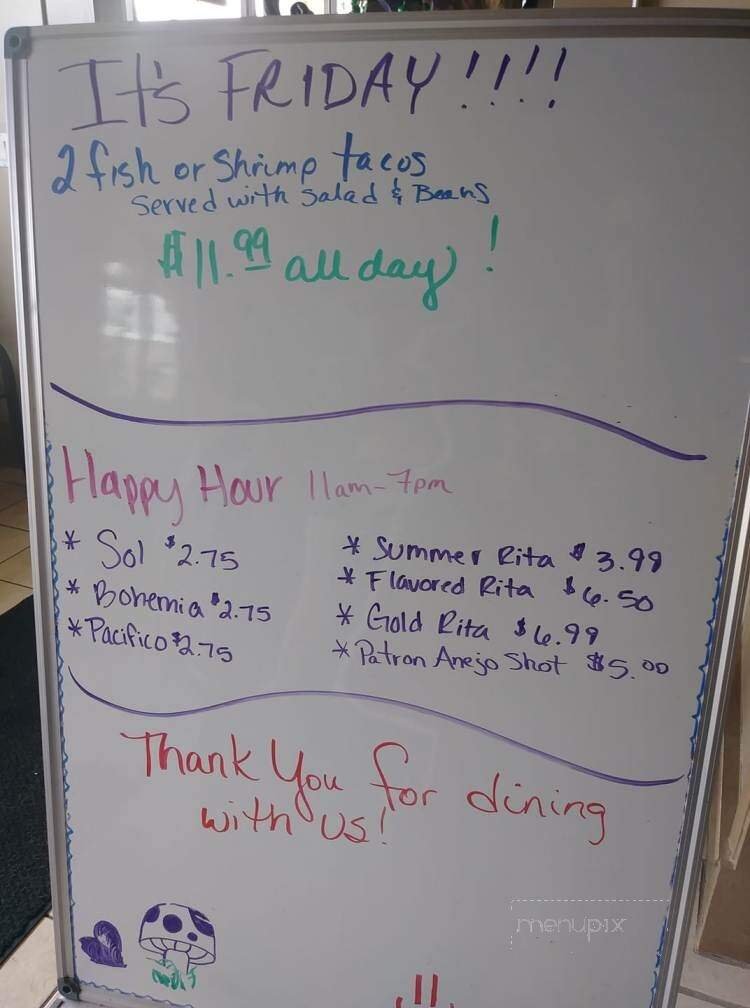 It's FRIDAY!!!!
2 fish or Shrimp tacos
Served with Salad & Beans
$11.99 all day!
Happy Hour 11am-7pm
* Sol $2.75
* Bohemia $2.75
* Pacifico $2.75
* Summer Rita $3.99
* Flavored Rita $6.50
* Gold Rita $6.99
* Patron Anejo Shot $5.00
Thank You for dining
with us!
menupix